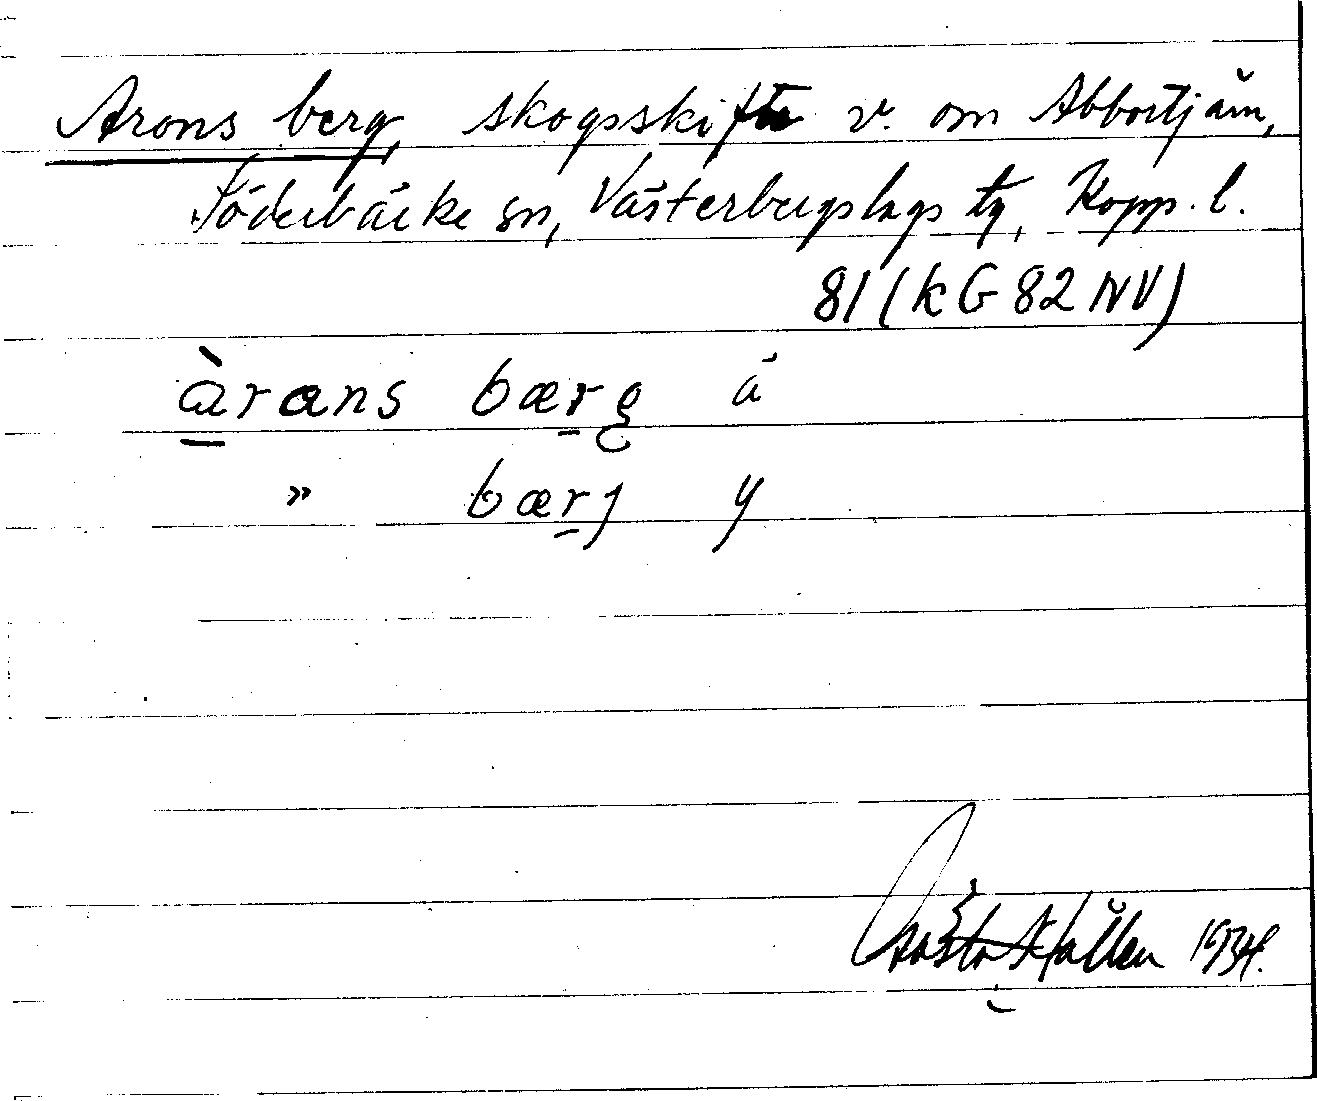 Arons berg, skogsskifte v. om Abbortjärn,
Söderbärke sn, Västerbergslags tg, Kopp. l.
81 (kG 82 NV)
àrans bærg ä
» bærj y
Gösta Hållen 1934.